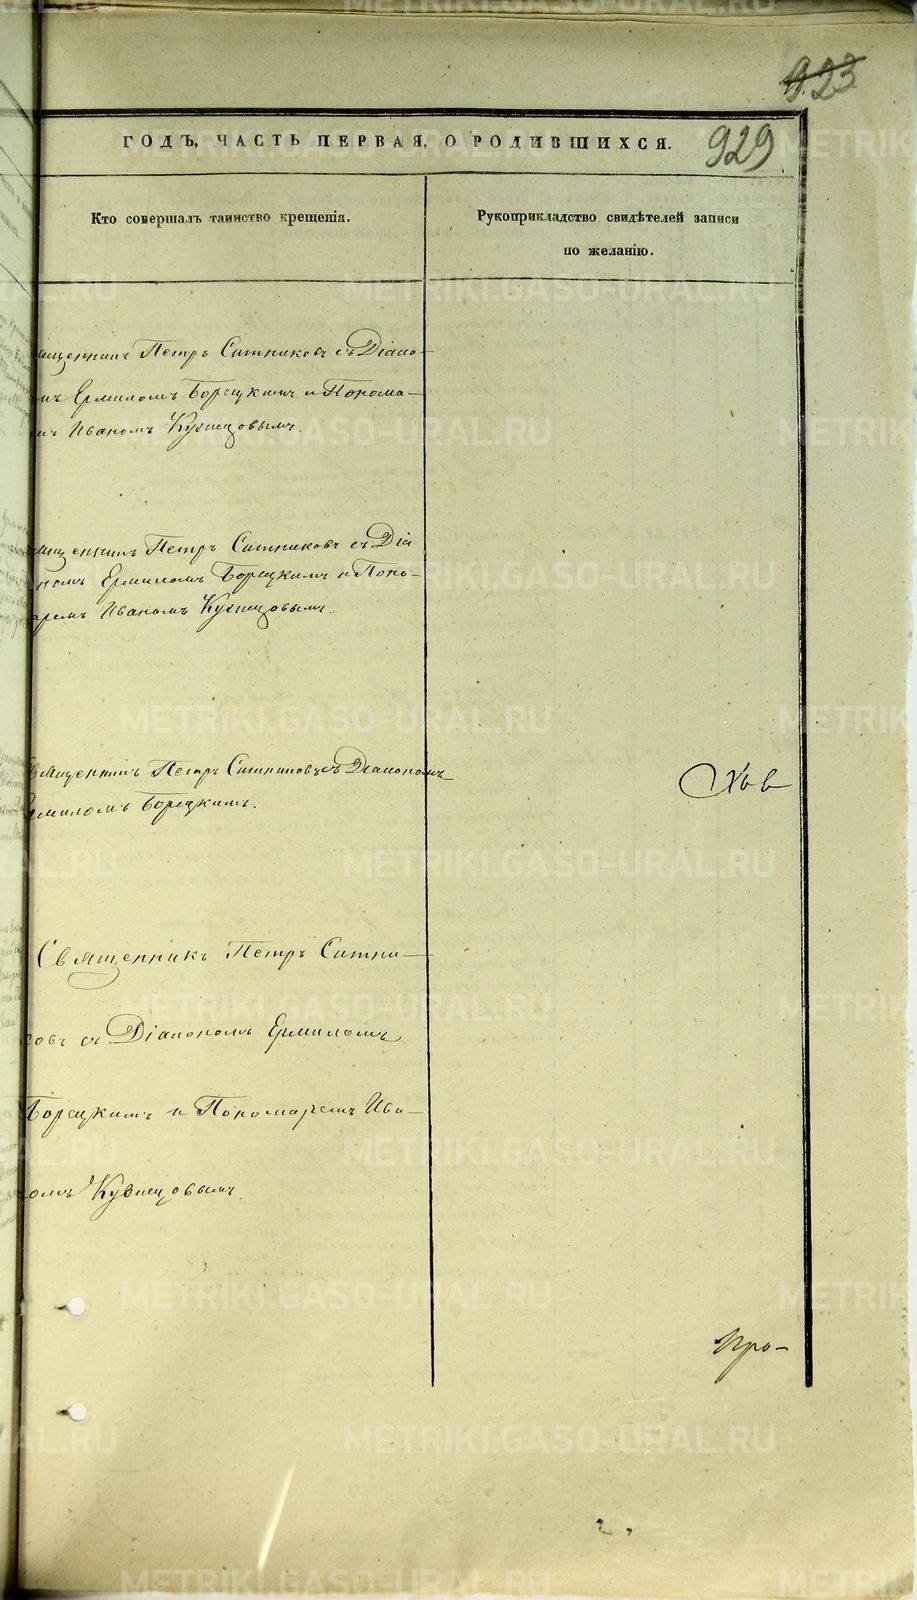 923
929
ГОДЪ, ЧАСТЬ ПЕРВАЯ, О РОДИВШИХСЯ.
Кто совершалъ таинство крещенія.
Рукоприкладство свидѣтелей записи
по желанію.
ященникъ Петръ Ситниковъ съ Діако-
мъ Ермиломъ Борецкимъ и Понома-
мъ Иваномъ Кузнецовымъ.
ященникъ Петръ Ситниковъ съ Діа
кномъ Ермиломъ Борецкимъ и Поно-
аремъ Иваномъ Кузнецовымъ.
Священникъ Петръ Ситниковъ съ Діакономъ
рмиломъ Борецкимъ.
Священникъ Петръ Ситни-
ковъ съ Діакономъ Ермиломъ
Борецкимъ и Пономаремъ Ива-
номъ Кузнецовымъ.
Про-
METRIKI.GASO-URAL.RU